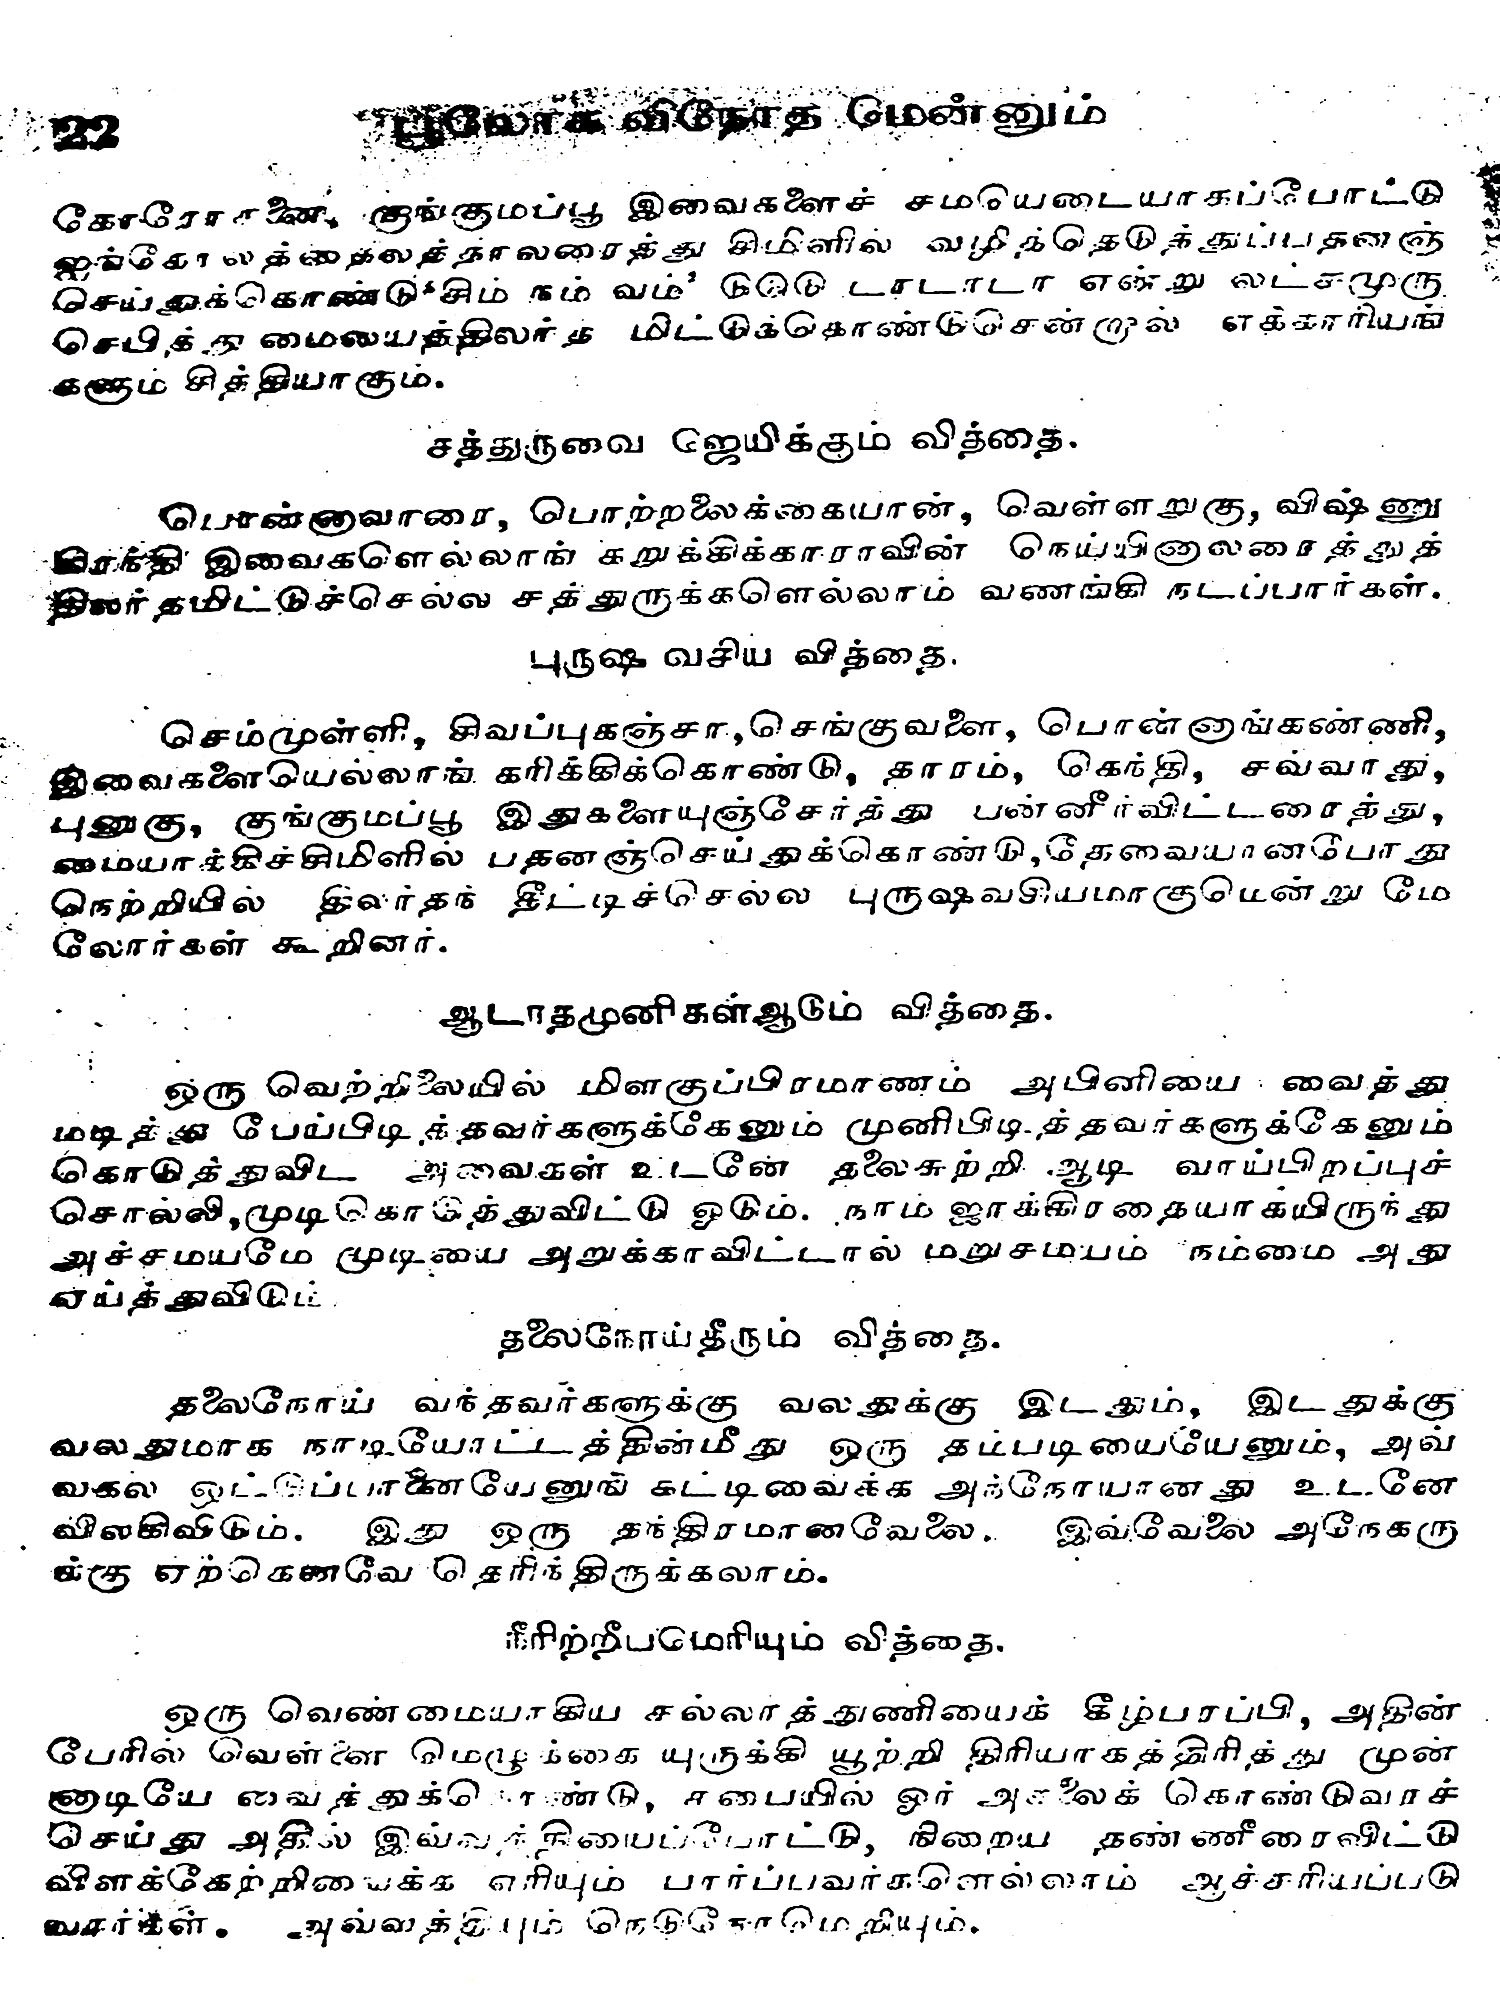 22 பூலோக வினோத மென்னும்
கோரோசனை, குங்குமப்பூ இவைகளைச் சமயெடையாகப்போட்டு
ஐங்கோலத்தைலத்தாலரைத்து சிமிளில் வழித்தெடுத்துப்பதனஞ்
செய்துக்கொண்டு 'சிம் நம் வம்' டுடுடு டாடாடா என்று லட்சமுரு
செபித்து மைலயத்திலர்த மிட்டுக்கொண்டுசென்றால் எக்காரியங்
களும் சித்தியாகும்.
சத்துருவை ஜெயிக்கும் வித்தை.
பொன்னாவாரை, பொற்றலைக்கையான், வெள்ளறுகு, விஷ்ணு
கிரந்தி இவைகளெல்லாங் கறுக்கிக்காராவின் நெய்யினாலரைத்துத்
திலர்தமிட்டுச்செல்ல சத்துருக்களெல்லாம் வணங்கி நடப்பார்கள்.
புருஷ வசிய வித்தை.
செம்முள்ளி, சிவப்புகஞ்சா, செங்குவளை, பொன்னாங்கண்ணி,
இவைகளையெல்லாங் கரிக்கிக்கொண்டு, தாரம், கெந்தி, சவ்வாது,
புனுகு, குங்குமப்பூ இதுகளையுஞ்சேர்த்து பன்னீர்விட்டரைத்து,
மையாக்கிச்சிமிளில் பதனஞ்செய்துக்கொண்டு, தேவையானபோது
நெற்றியில் திலர்தந் தீட்டிச்செல்ல புருஷவசியமாகுமென்று மே
லோர்கள் கூறினர்.
ஆடாதமுனிகள்ஆடும் வித்தை.
ஒரு வெற்றிலையில் மிளகுப்பிரமாணம் அபினியை வைத்து
மடித்து பேய்பிடித்தவர்களுக்கேனும் முனிபிடித்தவர்களுக்கேனும்
கொடுத்துவிட அவைகள் உடனே தலைசுற்றி ஆடி வாய்பிறப்புச்
சொல்லி, முடிகொடுத்துவிட்டு ஓடும். நாம் ஜாக்கிரதையாகயிருந்து
அச்சமயமே முடியை அறுக்காவிட்டால் மறுசமயம் நம்மை அது
ஏய்த்துவிடும்
தலைநோய்தீரும் வித்தை.
தலைநோய் வந்தவர்களுக்கு வலதுக்கு இடதும், இடதுக்கு
வலதுமாக நாடியோட்டத்தின்மீது ஒரு தம்படியையேனும், அவ்
வகல் ஒட்டுப்பானையேனுங் கட்டிவைக்க அந்நோயானது உடனே
விலகிவிடும். இது ஒரு தந்திரமானவேலை. இவ்வேலை அநேகரு
க்கு ஏற்கெனவே தெரிந்திருக்கலாம்.
நீரிற்றீபமெரியும் வித்தை.
ஒரு வெண்மையாகிய சல்லாத்துணியைக் கீழ்பரப்பி, அதின்
பேரில் வெள்ளை மெழுக்கை யுருக்கி யூற்றி திரியாகத்திரித்து முன்
னாடியே வைத்துக்கொண்டு, சபையில் ஓர் அகலைக் கொண்டுவரச்
செய்து அதில் இவ்வத்தியைப்போட்டு, நிறைய தண்ணீரைவிட்டு
விளக்கேற்றிவைக்க எரியும் பார்ப்பவர்களெல்லாம் ஆச்சரியப்படு
வார்கள். அவ்வத்தியும் நெடுநேரமெறியும்.